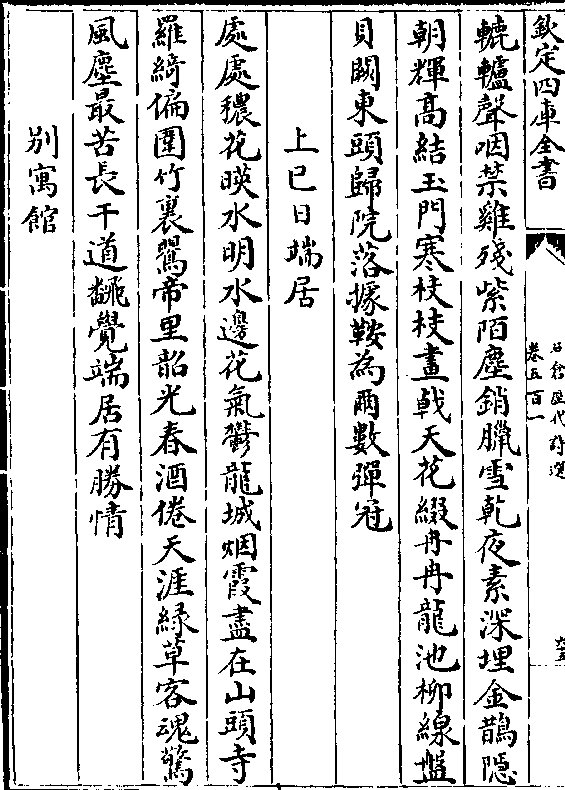 欽定四庫全書
石倉歷代詩選
卷五百一
轆轤聲咽禁雞殘紫陌塵銷臘雪乾夜素深埋金鵲隱
朝輝高結玉門寒枝枝畫戟天花綴冉冉龍池柳線盤
貝闕東頭歸院落據鞍為爾數彈冠
上巳日端居
處處穠花暎水明水邊花氣鬱龍城烟霞盡在山頭寺
羅綺偏圍竹裏鶯帝里韶光春酒倦天涯緑草客魂驚
風塵最苦長干道飜覺端居有勝情
別寓館